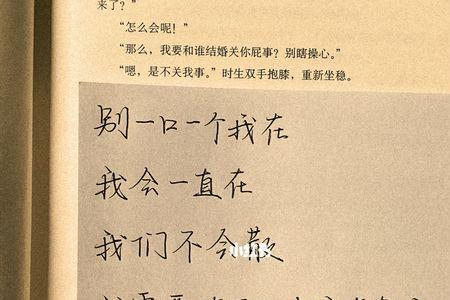 来了？”
“怎么会呢！”
“那么，我要和谁结婚关你屁事？别瞎操心。”
“嗯，是不关我事。”时生双手抱膝，重新坐稳。
别一口一个我在
我会一直在
我们不会散
小红书